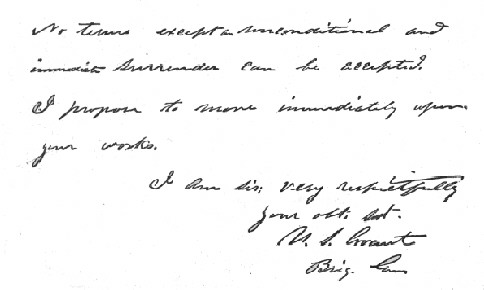 No terms except a unconditional and
immediate surrender can be accepted.
I propose to move immediately upon
your works.
I am sir: very respectfully
your obt. svt.
U. S. Grant
Brig. Gen